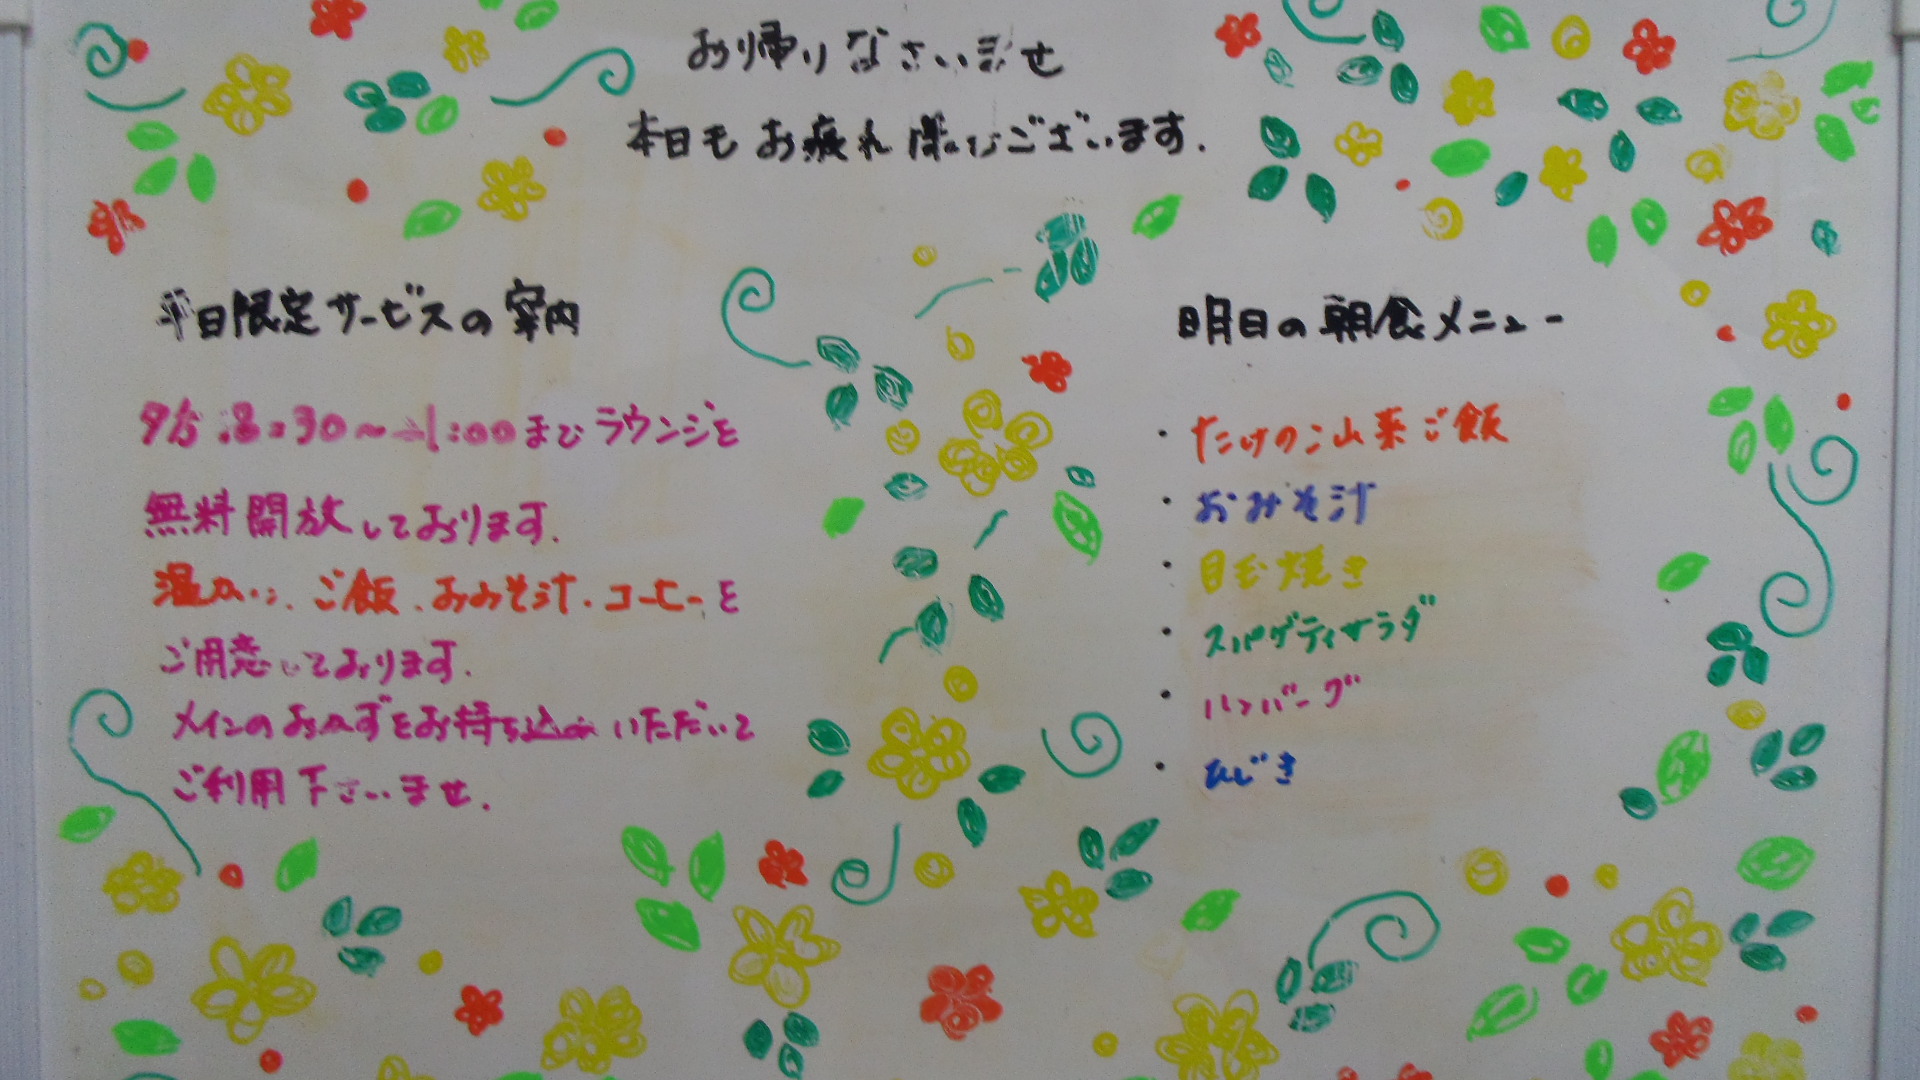 お帰りなさいませ
本日も お疲れ様でございます.
平日限定サービスの案内
夕方 :30〜 1:00までラウンジを
無料開放しております.
温かい、ご飯、おみそ汁・コーヒーを
ご用意しております.
メインのおかずをお持ち込みいただいて
ご利用下さいませ.
明日の朝食メニュー
・たけのこ山菜ご飯
・おみそ汁
・目玉焼き
・スパゲティサラダ
・ハンバーグ
・ひじき